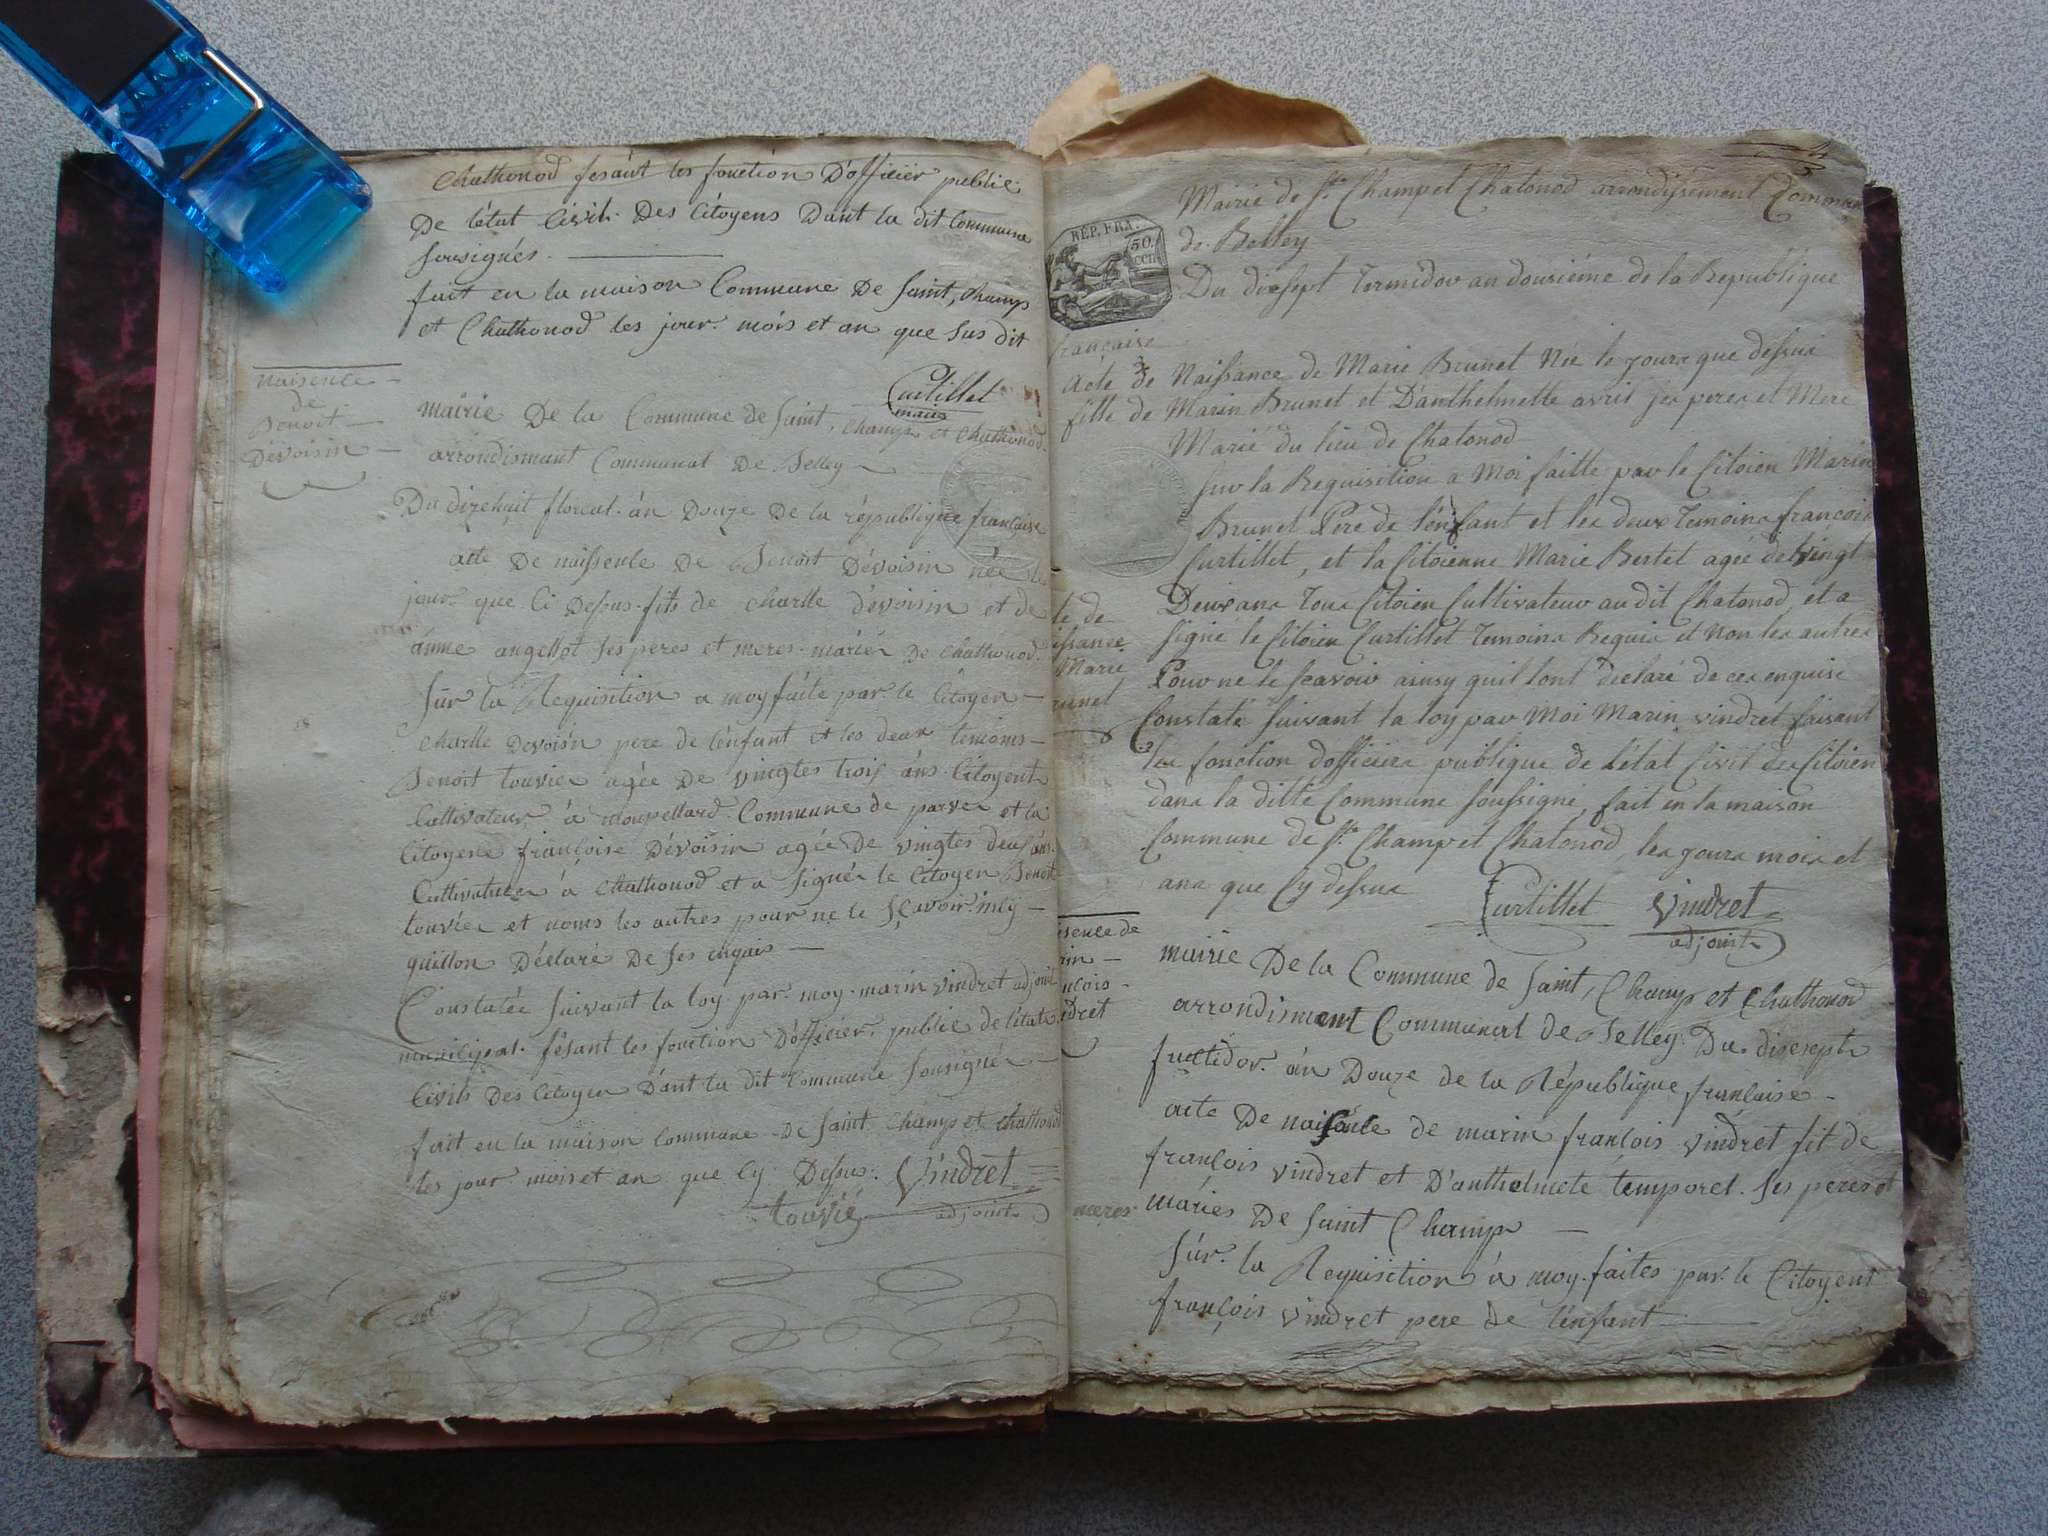 Chathonod fesant les fonction D'officier public
De l'état Civil. Des Citoyens Dant la dit Commune
sousignés.
fait en la maison Commune De saint, champs
et Chathonod les jour. mois et an que sus dit
Curtillet
maire
Naisence
de
Benoit
Dévoisin
mairie De la Commune de saint, champs et chathonod
arrondisment Communal De Belley
Du dixehuit floreal. án Douze De la république française
acte De naissence De Benoit Dévoisin née le
jour que Ci Dessus. fils de charlle dévoisin et de
ánne angellot ses peres et meres. mariér De chathonod.
Sur la Requisition a moy faite par le Citoyen
charlle Devoisin pere de l'énfant et les deux temoins
Benoit touvier agée De vingtes trois áns Citoyent
Cultivateur á Commune de parves et la
Citoyene françoise Dévoisin agée De vingtes deux áns.
Cultivateur á chathonod et a signér le Citoyen Benoit
touvier et noms les autres pour ne le sçavoir insy
quillon Déclaré De ses enquis
Constatée suivant la loy par. moy. marin vindret adjoint
municipal. fésant les fonction D'officier, public de l'état
Civils Des Citoyen D'ant la dit Commune sousignér
fait en la maison Commune De saint Champs et chathonod
les jour mois et an que Cy Dessus. Vindret
touvié adjoint
RÉP. FRA.
50.
cen
Mairie de St. Champ et Chatonod arrondissement Commun
de Belley
Du diesept Termidor an dousiéme de la Republique
française
Acte de Naissance de Marie Brunet Née le jours que dessus
fille de Marin Brunet et D'anthelmette avril ses peres et Mere
Marié du lieu de Chatonod
sur la Requisition a Moi faitte par le Citoien Marin
Brunet Pere de l'énfant et les deux Temoins françois
Curtillet, et la Citoienne Marie Bertet agée de vingt
Deux ans Tous Citoien Cultivateur au dit Chatonod, et a
signé le Citoien Curtillet Temoins Requis et Non les autres
Pour ne le scavoir ainsy quil lont déclaré de ces enquise
Constaté suivant la loy par Moi Marin vindret faisant
les fonction d'officiers publique de l'état Civil des Citoien
dans la ditte Commune soussigné, fait en la maison
Commune de St. Champ et Chatonod, les jours mois et
ans que Cy dessus
Curtillet Vindret
adjoint
te de
issance
Marie
runet
isence de
rin
nçois
ndret
mairie De la Commune de saint, Champs et Chathonod
arrondisment Communal de Belley. Du. disesept
fructidor. án Douze de la République française
acte De naisance de marin françois vindret fils de
françois vindret et D'anthelmete temporel. ses peres et
meres
máries De saint Champs
Sur. la Requisition á moy. faites par. le Citoyent
françois vindret pere de l'énfant